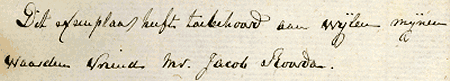 Dit exemplaar heeft toebehoord aan wijlen mijnen
waarden vriend Mr. Jacob Koorda.